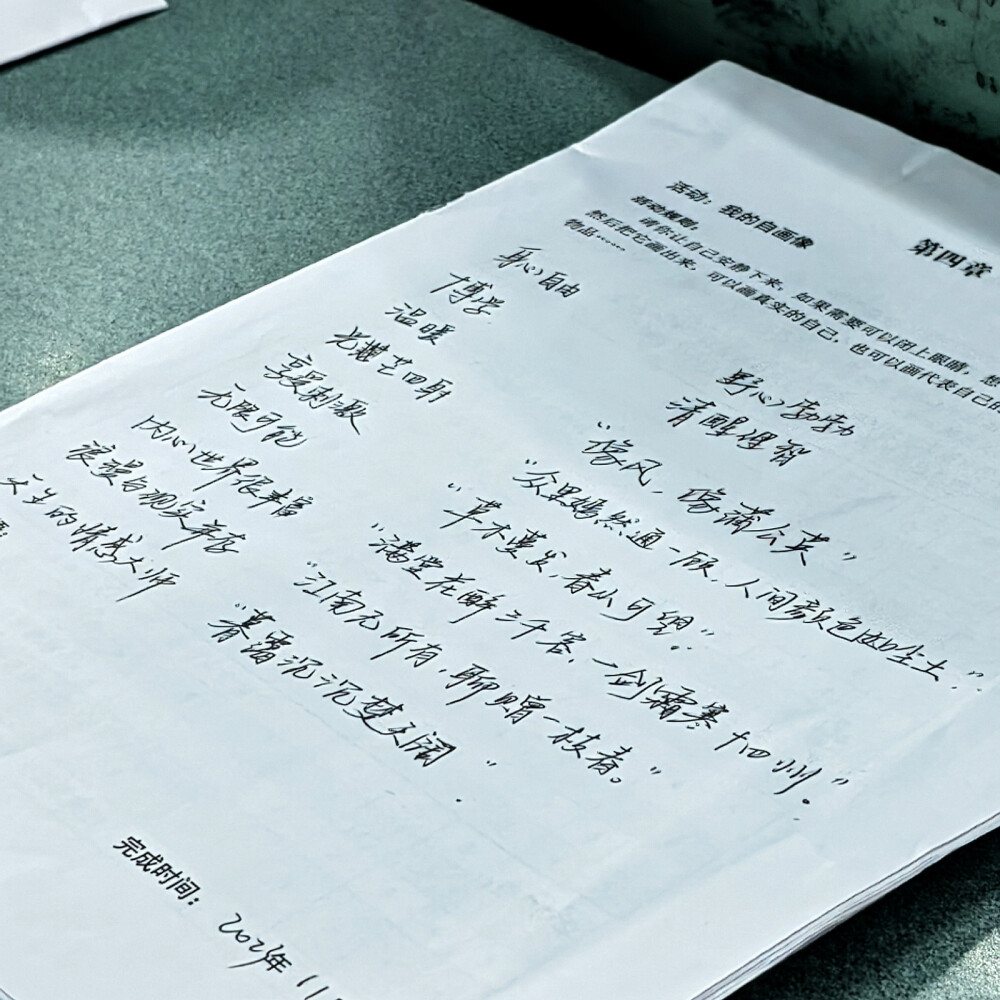 第四章
活动：我的自画像
活动规则：
请你让自己安静下来，如果需要可以闭上眼睛，想
然后把它画出来，可以画真实的自己，也可以画代表自己的
物品……
野心勃勃
清醒理智
“像风，像蒲公英”
“众里嫣然通一顾，人间颜色如尘土。”
“草木蔓发，春山可望。”
“满堂花醉三千客，一剑霜寒十四州。”
“江南无所有，聊赠一枝春。”
“暮霭沉沉楚天阔”
身心自由
博学
温暖
光芒四射
享受刺激
无限可能
内心世界很丰富
浪漫与现实并存
天生的情感大师
完成时间：